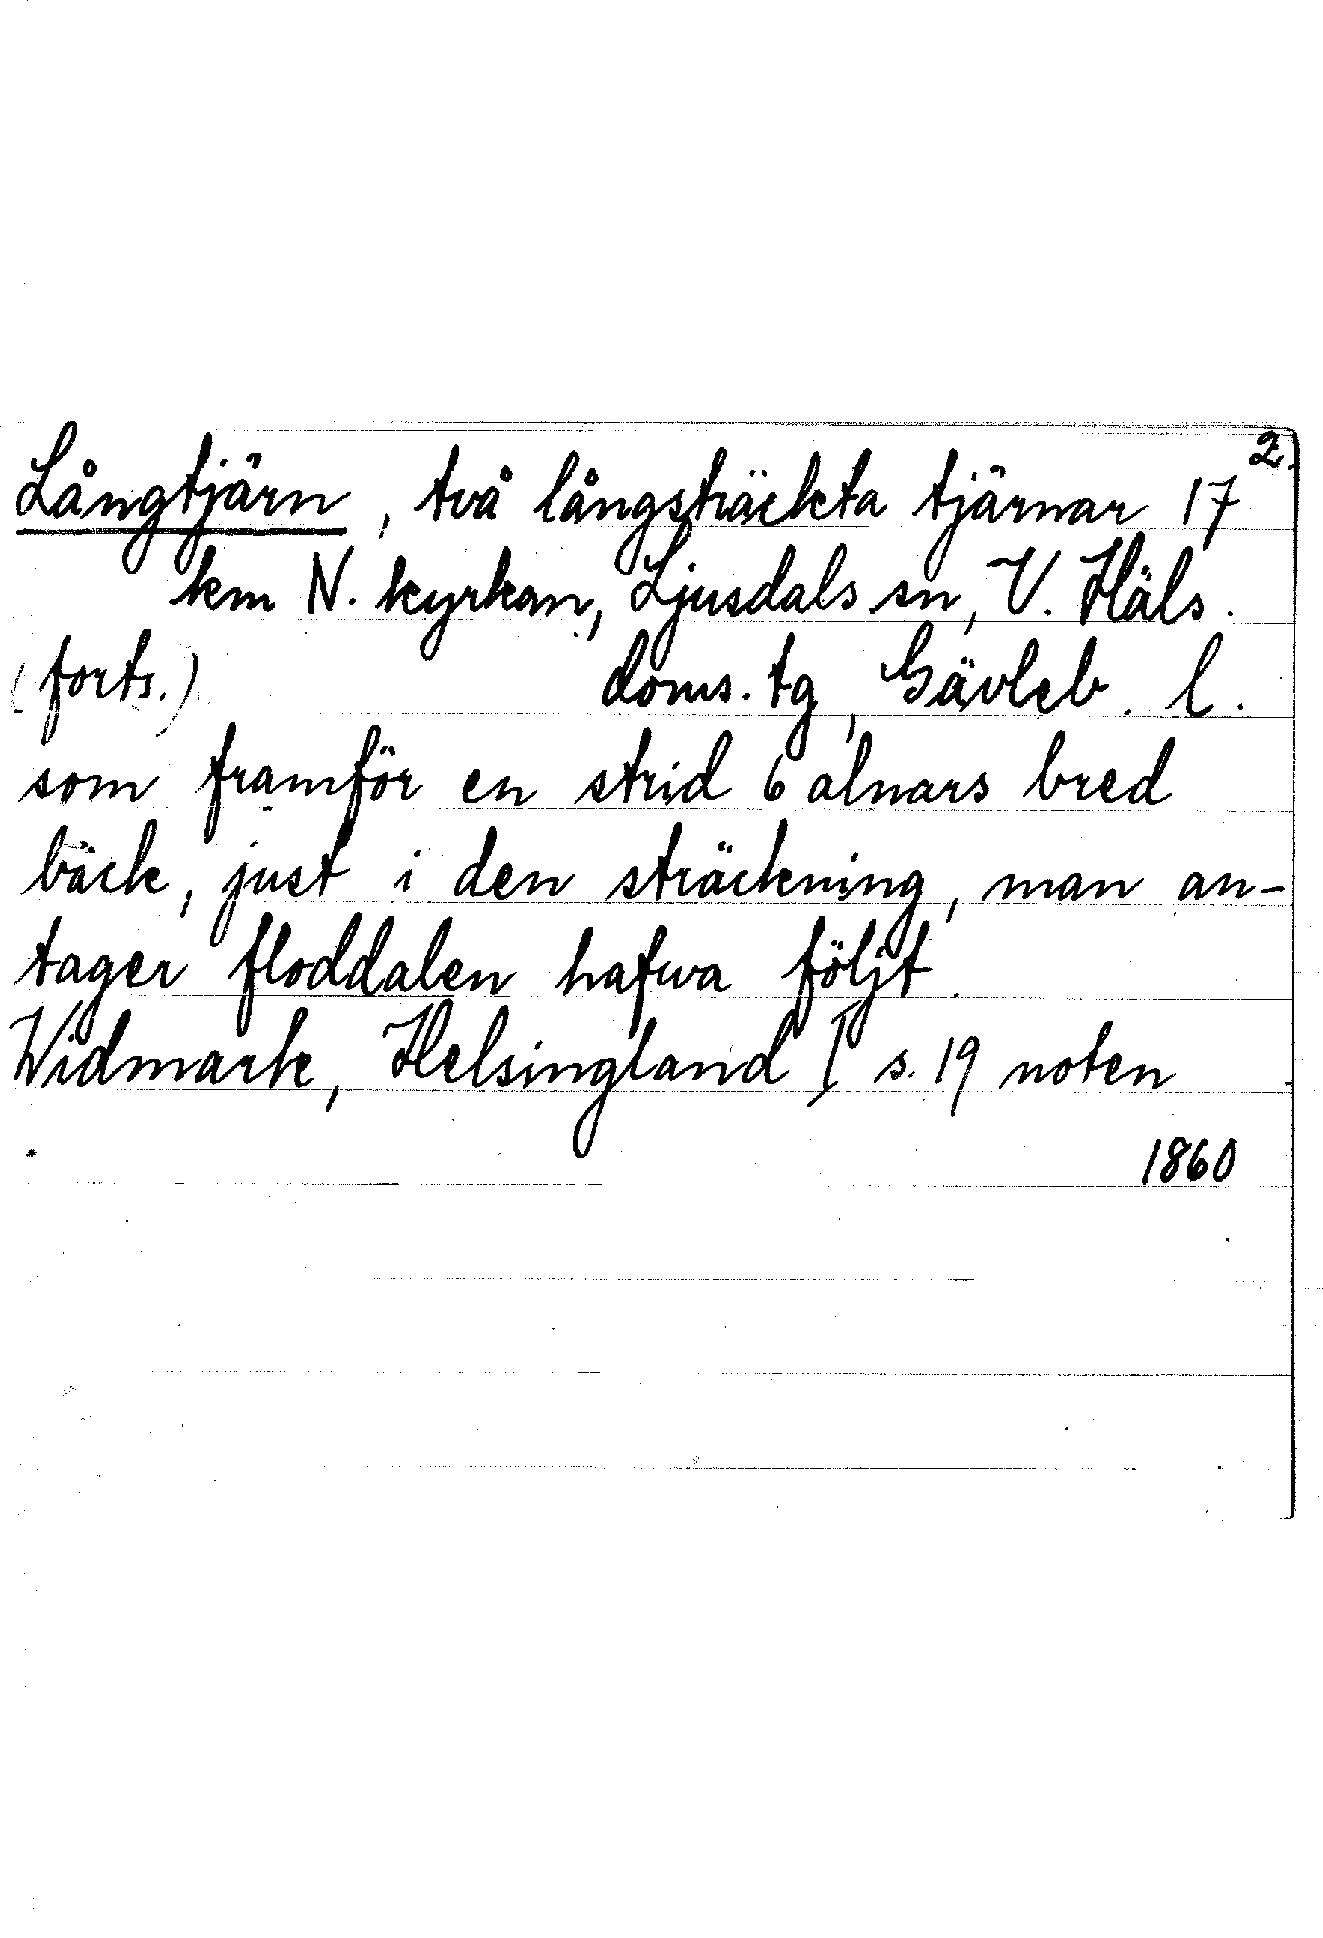 2.
Långtjärn, två långsträckta tjärnar 17
km N. kyrkan, Ljusdals sn, V. Häls.
(forts.) doms. tg, Gävleb. l.
som framför en strid 6 alnars bred
bäck, just i den sträckning, man an-
tager floddalen hafwa följt.
Widmark, Helsingland I s. 19 noten
1860